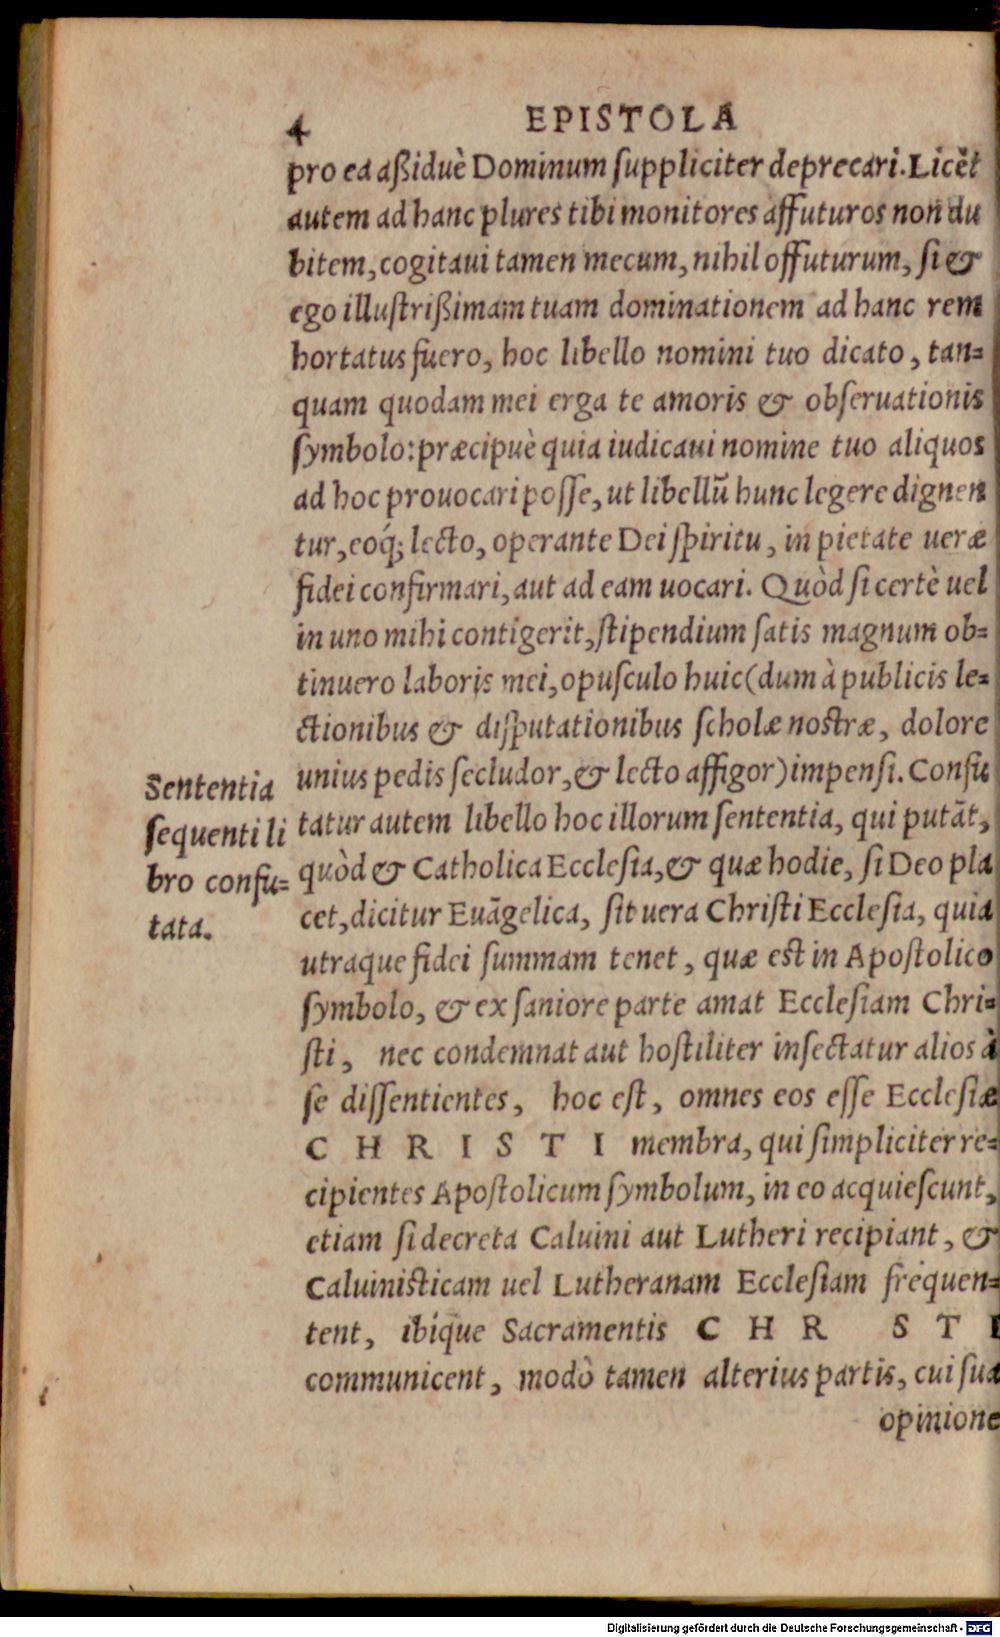 4 EPISTOLA
pro ea aßiduè Dominum ſuppliciter deprecari. Licèt
autem ad hanc plures tibi monitores affuturos non du
bitem, cogitaui tamen mecum, nihil offuturum, ſi &
ego illuſtrißimam tuam dominationem ad hanc rem
hortatus fuero, hoc libello nomini tuo dicato, tan=
quam quodam mei erga te amoris & obſeruationis
ſymbolo: præcipuè quia iudicaui nomine tuo aliquos
ad hoc prouocari poſſe, ut libellũ hunc legere dignen
tur, eoq́; lecto, operante Dei ſpiritu, in pietate ueræ
fidei confirmari, aut ad eam uocari. Quòd ſi certè uel
in uno mihi contigerit, ſtipendium ſatis magnum ob=
tinuero laboris mei, opuſculo huic (dum à publicis le=
ctionibus & diſputationibus ſcholæ noſtræ, dolore
unius pedis ſecludor, & lecto affigor) impenſi. Confu
tatur autem libello hoc illorum ſententia, qui putãt,
quòd & Catholica Eccleſia, & quæ hodie, ſi Deo pla
cet, dicitur Euãgelica, ſit uera Chriſti Eccleſia, quia
utraque fidei ſummam tenet, quæ eſt in Apoſtolico
ſymbolo, & ex ſaniore parte amat Eccleſiam Chri=
ſti, nec condemnat aut hoſtiliter inſectatur alios à
ſe diſſentientes, hoc eſt, omnes eos eſſe Eccleſiæ
C H R I S T I membra, qui ſimpliciter re=
cipientes Apoſtolicum ſymbolum, in eo acquieſcunt,
etiam ſi decreta Caluini aut Lutheri recipiant, &
Caluiniſticam uel Lutheranam Eccleſiam frequen=
tent, ibique Sacramentis C H R S T I
communicent, modò tamen alterius partis, cui ſua
opinione
Sententia
ſequenti li
bro confu=
tata.
Digitalisierung gefördert durch die Deutsche Forschungsgemeinschaft - DFG